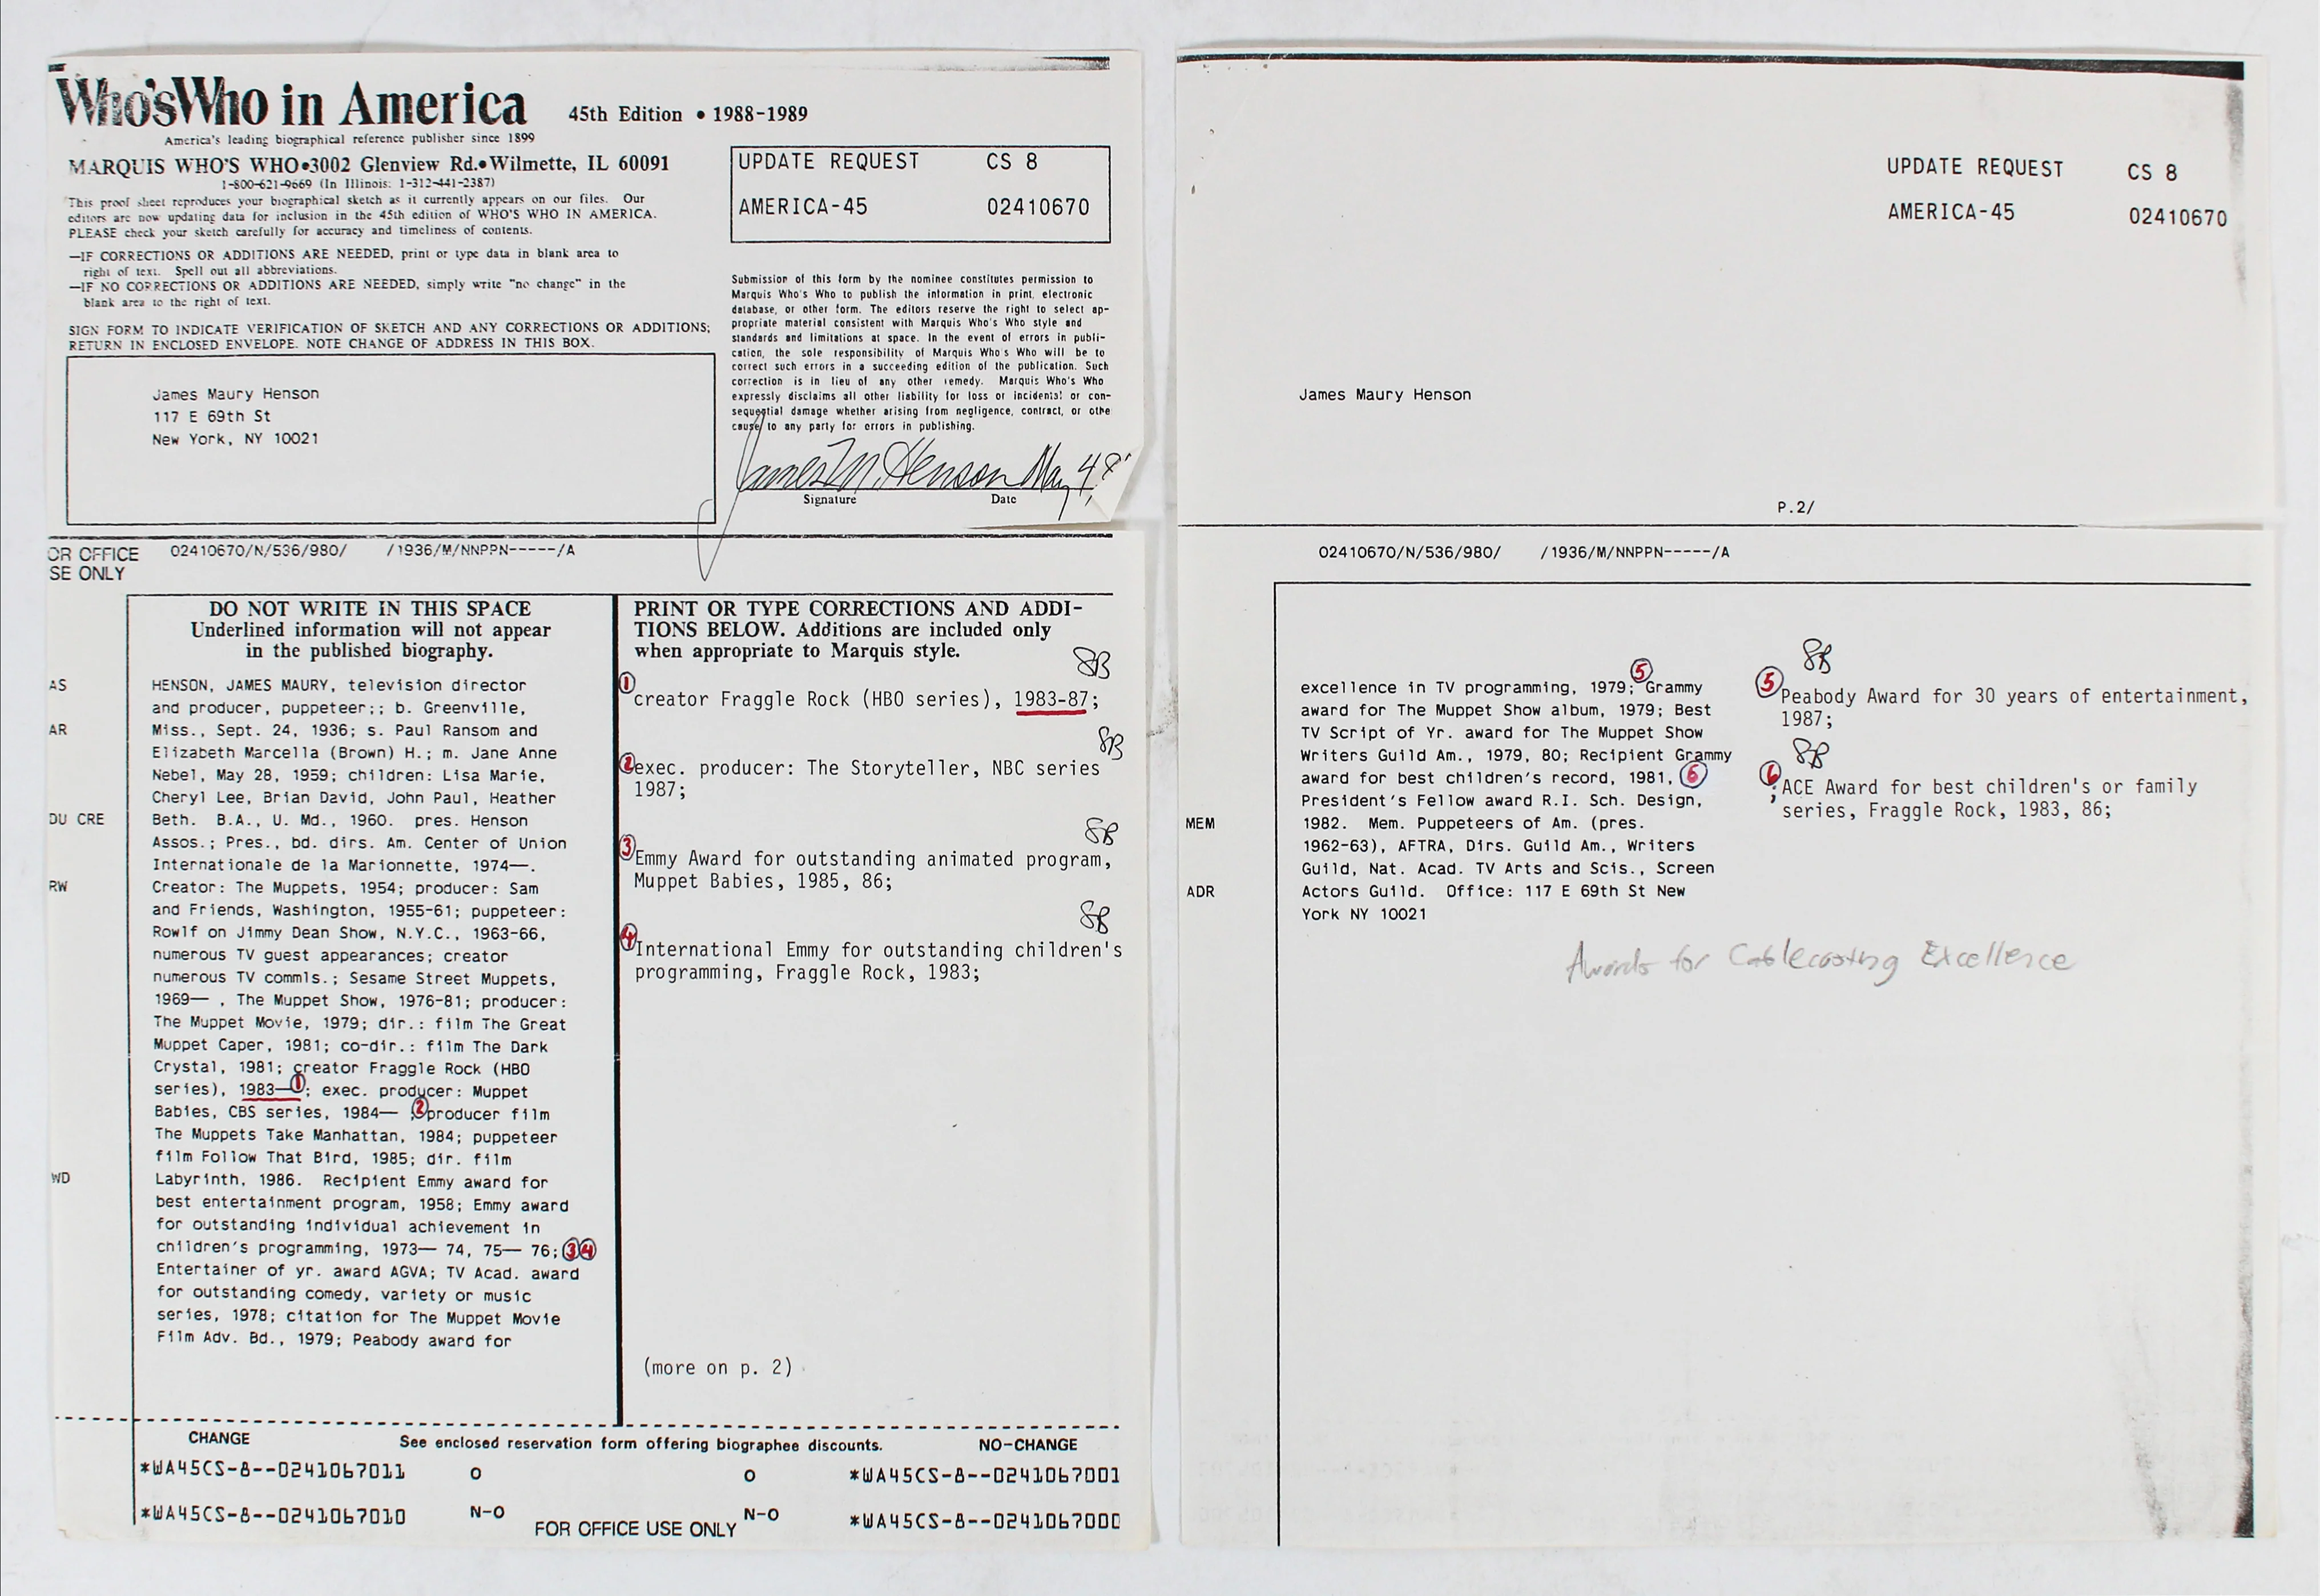 Who'sWho in America 45th Edition • 1988-1989
America's leading biographical reference publisher since 1899
MARQUIS WHO'S WHO•3002 Glenview Rd.•Wilmette, IL 60091
1-800-621-9669 (In Illinois: 1-312-441-2387)
This proof sheet reproduces your biographical sketch as it currently appears on our files. Our
editors are now updating data for inclusion in the 45th edition of WHO'S WHO IN AMERICA.
PLEASE check your sketch carefully for accuracy and timeliness of contents.
—IF CORRECTIONS OR ADDITIONS ARE NEEDED, print or type data in blank area to
right of text. Spell out all abbreviations.
—IF NO CORRECTIONS OR ADDITIONS ARE NEEDED, simply write "no change" in the
blank area to the right of text.
SIGN FORM TO INDICATE VERIFICATION OF SKETCH AND ANY CORRECTIONS OR ADDITIONS;
RETURN IN ENCLOSED ENVELOPE. NOTE CHANGE OF ADDRESS IN THIS BOX.
James Maury Henson
117 E 69th St
New York, NY 10021
UPDATE REQUEST CS 8
AMERICA-45 02410670
Submission of this form by the nominee constitutes permission to
Marquis Who's Who to publish the information in print, electronic
database, or other form. The editors reserve the right to select ap-
propriate material consistent with Marquis Who's Who style and
standards and limitations at space. In the event of errors in publi-
cation, the sole responsibility of Marquis Who's Who will be to
correct such errors in a succeeding edition of the publication. Such
correction is in lieu of any other remedy. Marquis Who's Who
expressly disclaims all other liability for loss or incidental or con-
sequential damage whether arising from negligence, contract, or othe
cause to any party for errors in publishing.
James M. Henson May 4, 8
Signature Date
OR OFFICE 02410670/N/536/980/ /1936/M/NNPPN-----/A
SE ONLY
DO NOT WRITE IN THIS SPACE
Underlined information will not appear
in the published biography.
AS HENSON, JAMES MAURY, television director
and producer, puppeteer;; b. Greenville,
AR Miss., Sept. 24, 1936; s. Paul Ransom and
Elizabeth Marcella (Brown) H.; m. Jane Anne
Nebel, May 28, 1959; children: Lisa Marie,
Cheryl Lee, Brian David, John Paul, Heather
DU CRE Beth. B.A., U. Md., 1960. pres. Henson
Assos.; Pres., bd. dirs. Am. Center of Union
Internationale de la Marionnette, 1974—.
RW Creator: The Muppets, 1954; producer: Sam
and Friends, Washington, 1955-61; puppeteer:
Rowlf on Jimmy Dean Show, N.Y.C., 1963-66,
numerous TV guest appearances; creator
numerous TV commls.; Sesame Street Muppets,
1969— , The Muppet Show, 1976-81; producer:
The Muppet Movie, 1979; dir.: film The Great
Muppet Caper, 1981; co-dir.: film The Dark
Crystal, 1981; creator Fraggle Rock (HBO
series), 1983— 1; exec. producer: Muppet
Babies, CBS series, 1984— ; 2 producer film
The Muppets Take Manhattan, 1984; puppeteer
film Follow That Bird, 1985; dir. film
WD Labyrinth, 1986. Recipient Emmy award for
best entertainment program, 1958; Emmy award
for outstanding individual achievement in
children's programming, 1973— 74, 75— 76; 3 4
Entertainer of yr. award AGVA; TV Acad. award
for outstanding comedy, variety or music
series, 1978; citation for The Muppet Movie
Film Adv. Bd., 1979; Peabody award for
PRINT OR TYPE CORRECTIONS AND ADDI-
TIONS BELOW. Additions are included only
when appropriate to Marquis style.
1 creator Fraggle Rock (HBO series), 1983-87;
2 exec. producer: The Storyteller, NBC series
1987;
3 Emmy Award for outstanding animated program,
Muppet Babies, 1985, 86;
4 International Emmy for outstanding children's
programming, Fraggle Rock, 1983;
(more on p. 2)
CHANGE See enclosed reservation form offering biographee discounts. NO-CHANGE
*WA45CS-8--0241067011 O O *WA45CS-8--0241067001
*WA45CS-8--0241067010 N-O FOR OFFICE USE ONLY N-O *WA45CS-8--0241067000
UPDATE REQUEST CS 8
AMERICA-45 02410670
James Maury Henson
P.2/
02410670/N/536/980/ /1936/M/NNPPN-----/A
excellence in TV programming, 1979; 5 Grammy
award for The Muppet Show album, 1979; Best
TV Script of Yr. award for The Muppet Show
Writers Guild Am., 1979, 80; Recipient Grammy
award for best children's record, 1981, 6
President's Fellow award R.I. Sch. Design,
MEM 1982. Mem. Puppeteers of Am. (pres.
1962-63), AFTRA, Dirs. Guild Am., Writers
Guild, Nat. Acad. TV Arts and Scis., Screen
ADR Actors Guild. Office: 117 E 69th St New
York NY 10021
5 Peabody Award for 30 years of entertainment,
1987;
6 ; ACE Award for best children's or family
series, Fraggle Rock, 1983, 86;
Awards for Cablecasting Excellence